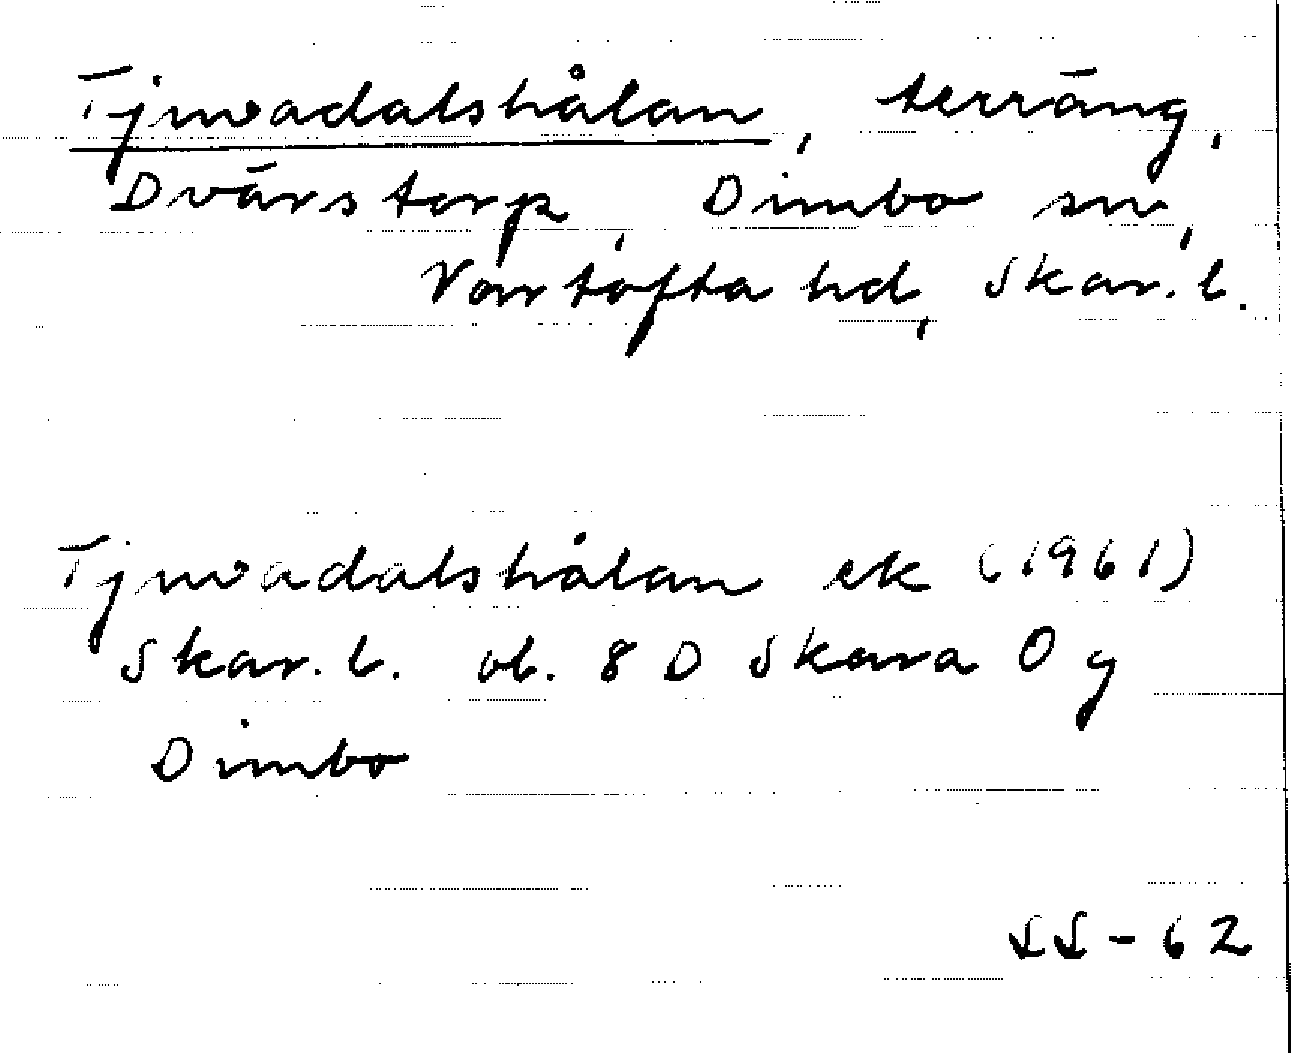 Tjuvadalshålan, terräng,
Dvärstorp, Dimbo sn,
Vartofta hd, Skar. l.
Tjuvadalshålan ek (1961)
Skar. l. bl. 8 D Skara Og
Dimbo
SS-62